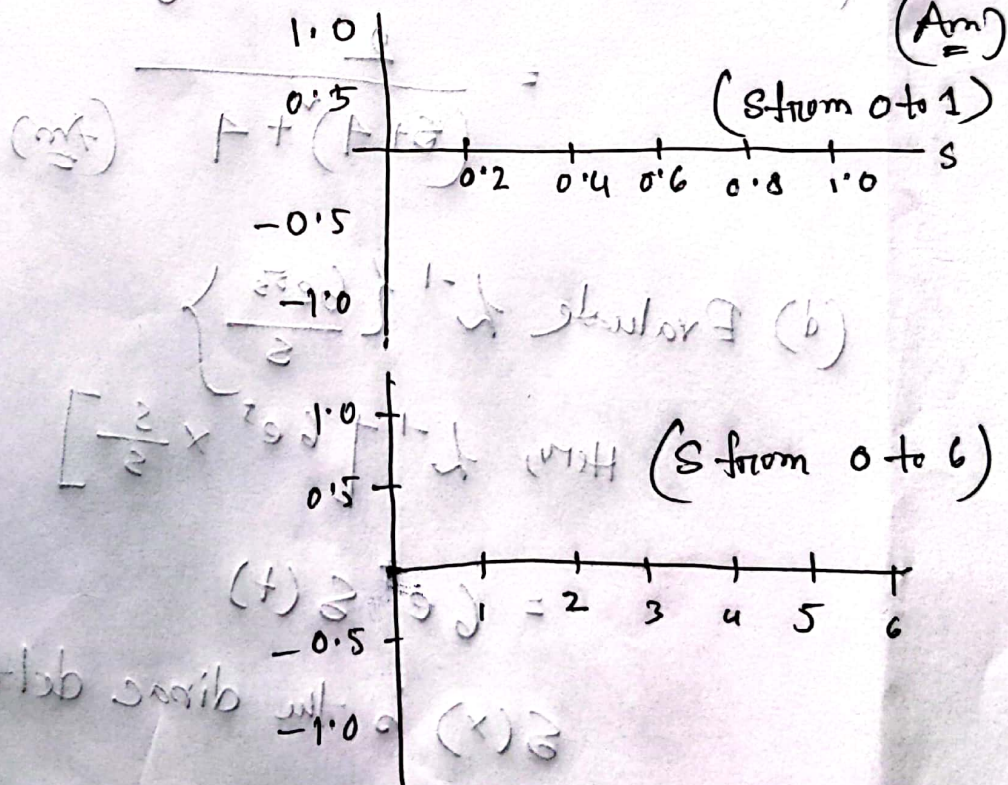 1.0
(Ans)
0.5
(S from 0 to 1)
S
0.2 0.4 0.6 0.8 1.0
-0.5
-1.0
1.0
(S from 0 to 6)
0.5
1 2 3 4 5 6
-0.5
-1.0